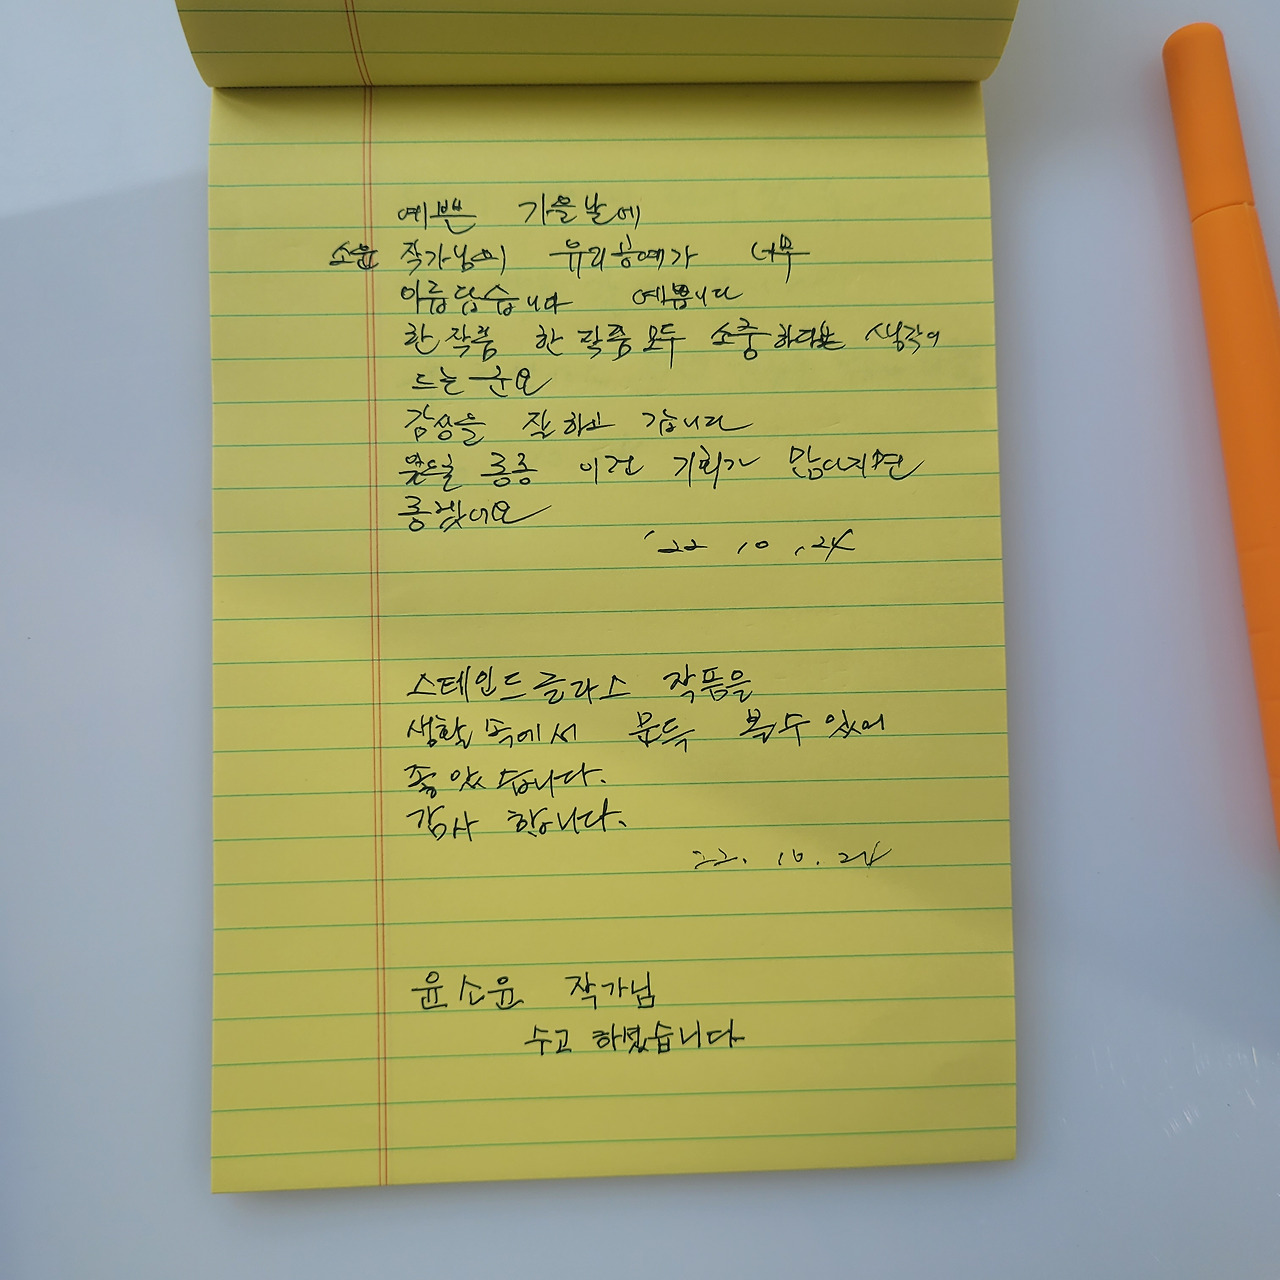 예쁜 가을날에
소윤 작가님의 유리공예가 너무
아름답습니다 예쁩니다
한작품 한작품모두 소중하다는 생각이
드는군요
감상을 잘하고 갑니다
종종 이런 기회가 많다지면
좋겠어요
'22 .10 .24
스테인드글라스 작품을
생활속에서 문득 볼수있어
좋았습니다.
감사합니다.
22. 10. 24
윤소윤 작가님
수고 하셨습니다